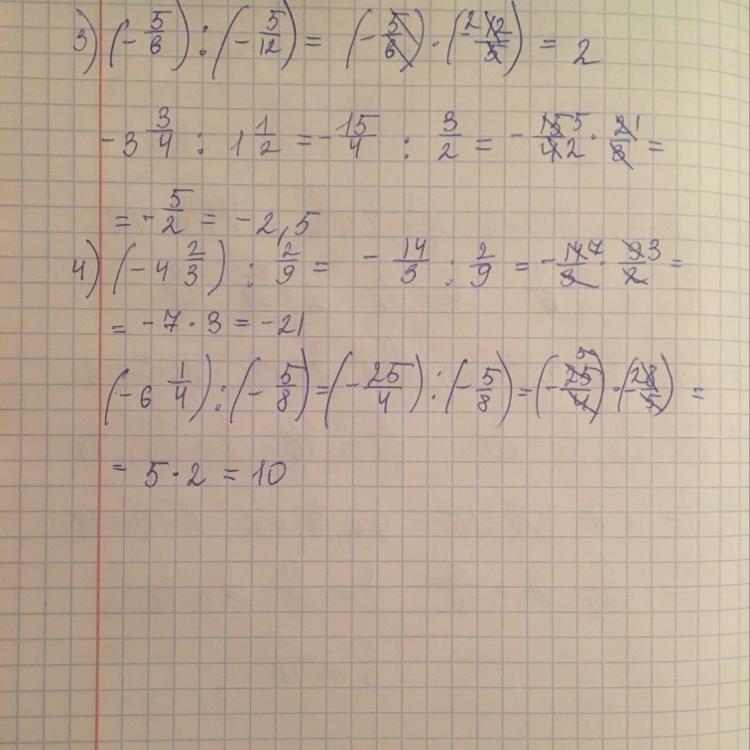 3) (-5/6) : (-5/12) = (-5/6) · (-2 12/5) = 2
-3 3/4 : 1 1/2 = -15/4 : 3/2 = -15 5/4 2 · 2 1/3 =
= -5/2 = -2,5
4) (-4 2/3) : 2/9 = -14/3 : 2/9 = -14 7/3 · 9 3/2 =
= -7 · 3 = -21
(-6 1/4) : (-5/8) = (-25/4) : (-5/8) = (-25 5/4) · (-2 8/5) =
= 5 · 2 = 10